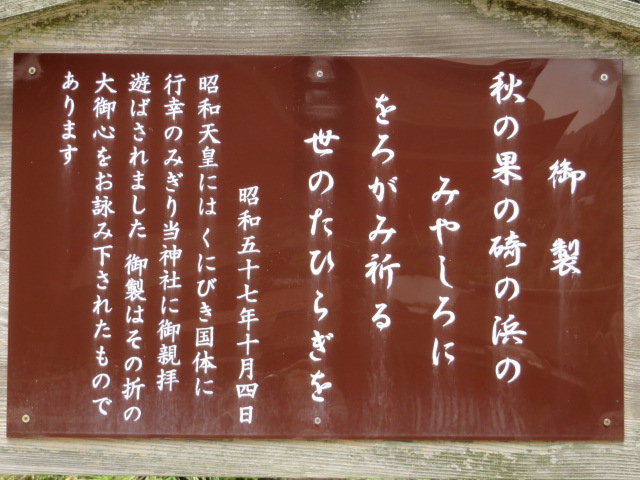 御製
秋の果の碕の浜の
みやしろに
をろがみ祈る
世のたひらぎを
昭和五十七年十月四日
昭和天皇には くにびき国体に
行幸のみぎり当神社に御親拝
遊ばされました 御製はその折の
大御心をお詠み下されたもので
あります